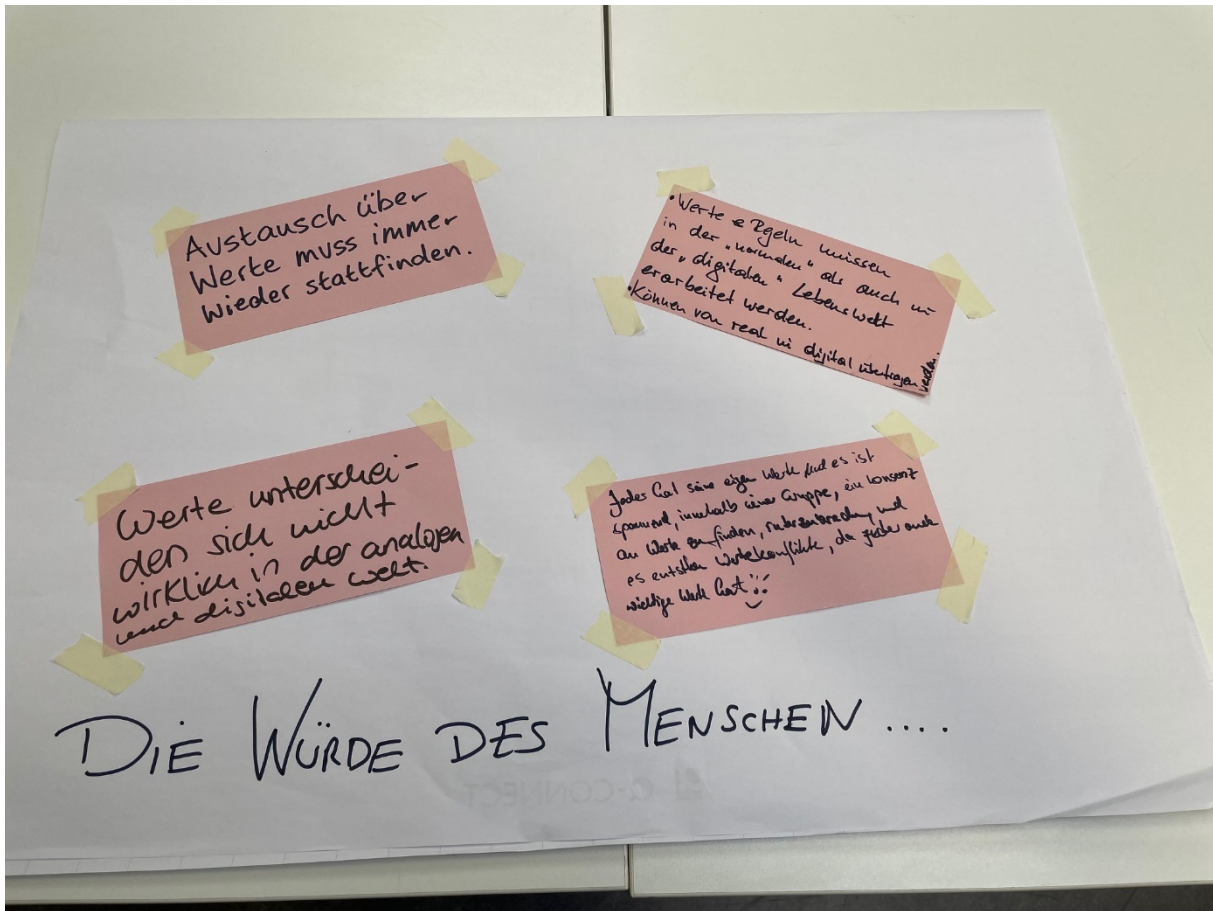 Austausch über
Werte muss immer
wieder stattfinden.
• Werte & Rgeln müssen
in der "normalen" als auch in
der "digitalen" Lebenswelt
erarbeitet werden.
• Können von real in digital übertragen werden.
Werte unterschei-
den sich nicht
wirklich in der analogen
und digitalen Welt.
Jedes hat seine eigen Werte und es ist
spannend, innerhalb einer Gruppe, ein Konsenz
an Werte zu finden, und
es entstehen Wertekonflikte, da jeder auch
wichtige Werte hat
DIE WÜRDE DES MENSCHEN ....
Q-CONNECT